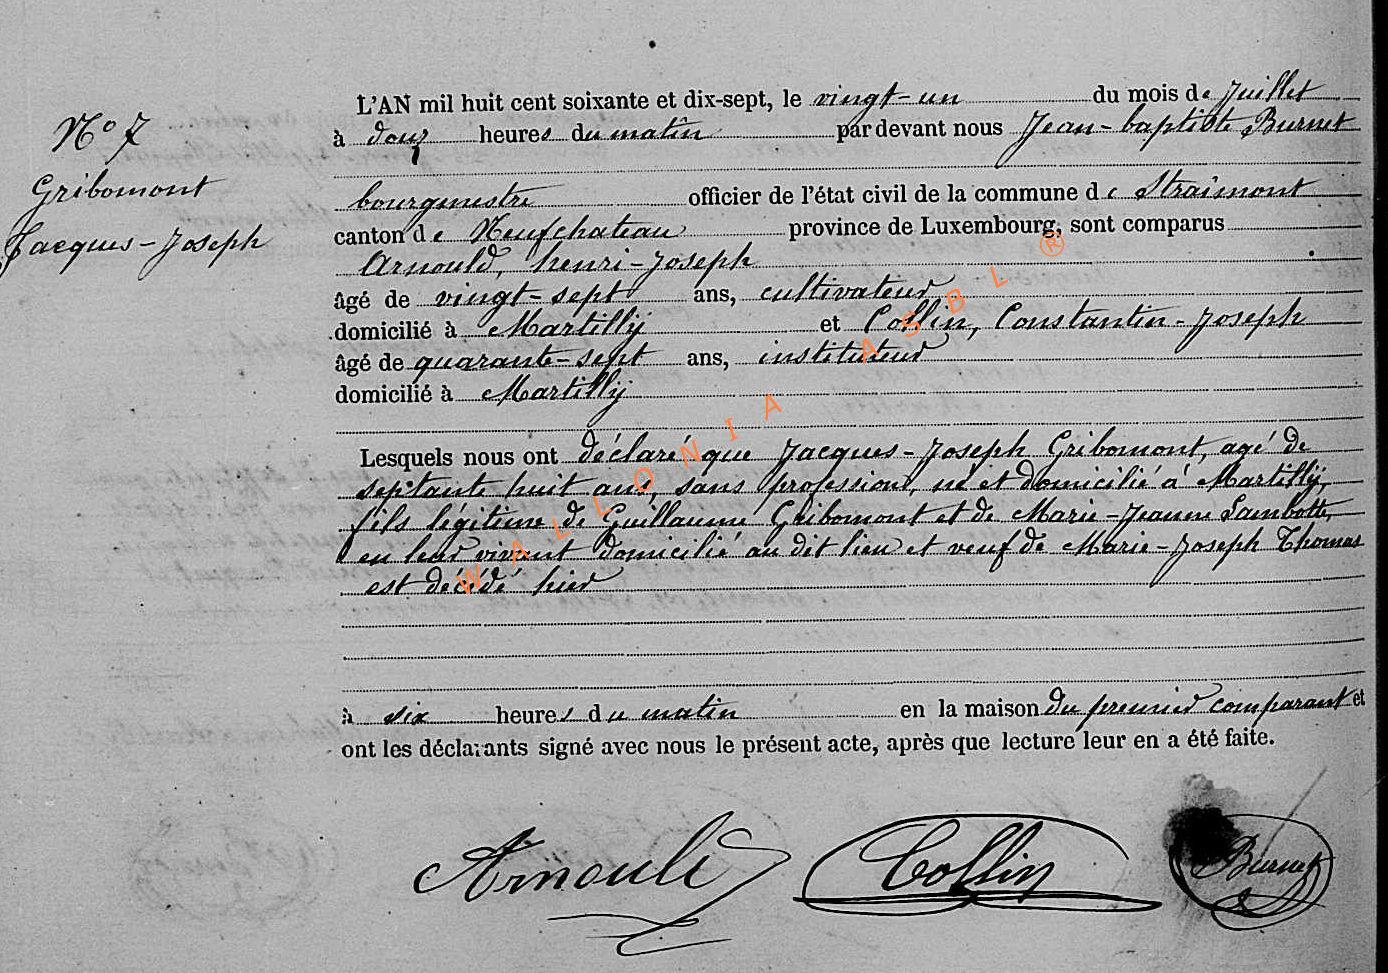 N° 7
Gribomont
Jacques-Joseph
L'AN mil huit cent soixante et dix-sept, le vingt-un du mois de Juillet
à heures du matin par devant nous Jean-baptiste Burnet
bourgmestre officier de l'état civil de la commune de Straimont
canton de Neufchateau province de Luxembourg, sont comparus
Arnould, henri-Joseph
âgé de vingt-sept ans, cultivateur
domicilié à Martilly et Collin, Constantin-Joseph
âgé de quarante-sept ans, instituteur
domicilié à Martilly
Lesquels nous ont déclaré que Jacques-Joseph Gribomont, agé de
septante huit ans, sans profession, né et domicilié à Martilly,
fils légitime de Guillaume Gribomont et de Marie-Jeanne Lambotte,
en leur vivant domicilié au dit lieu et veuf de Marie-Joseph Thomas
est décédé hier
à six heures du matin en la maison du premier comparant et
ont les déclarants signé avec nous le présent acte, après que lecture leur en a été faite.
Arnould Collin Burnet
WALLONIA ASBL ®